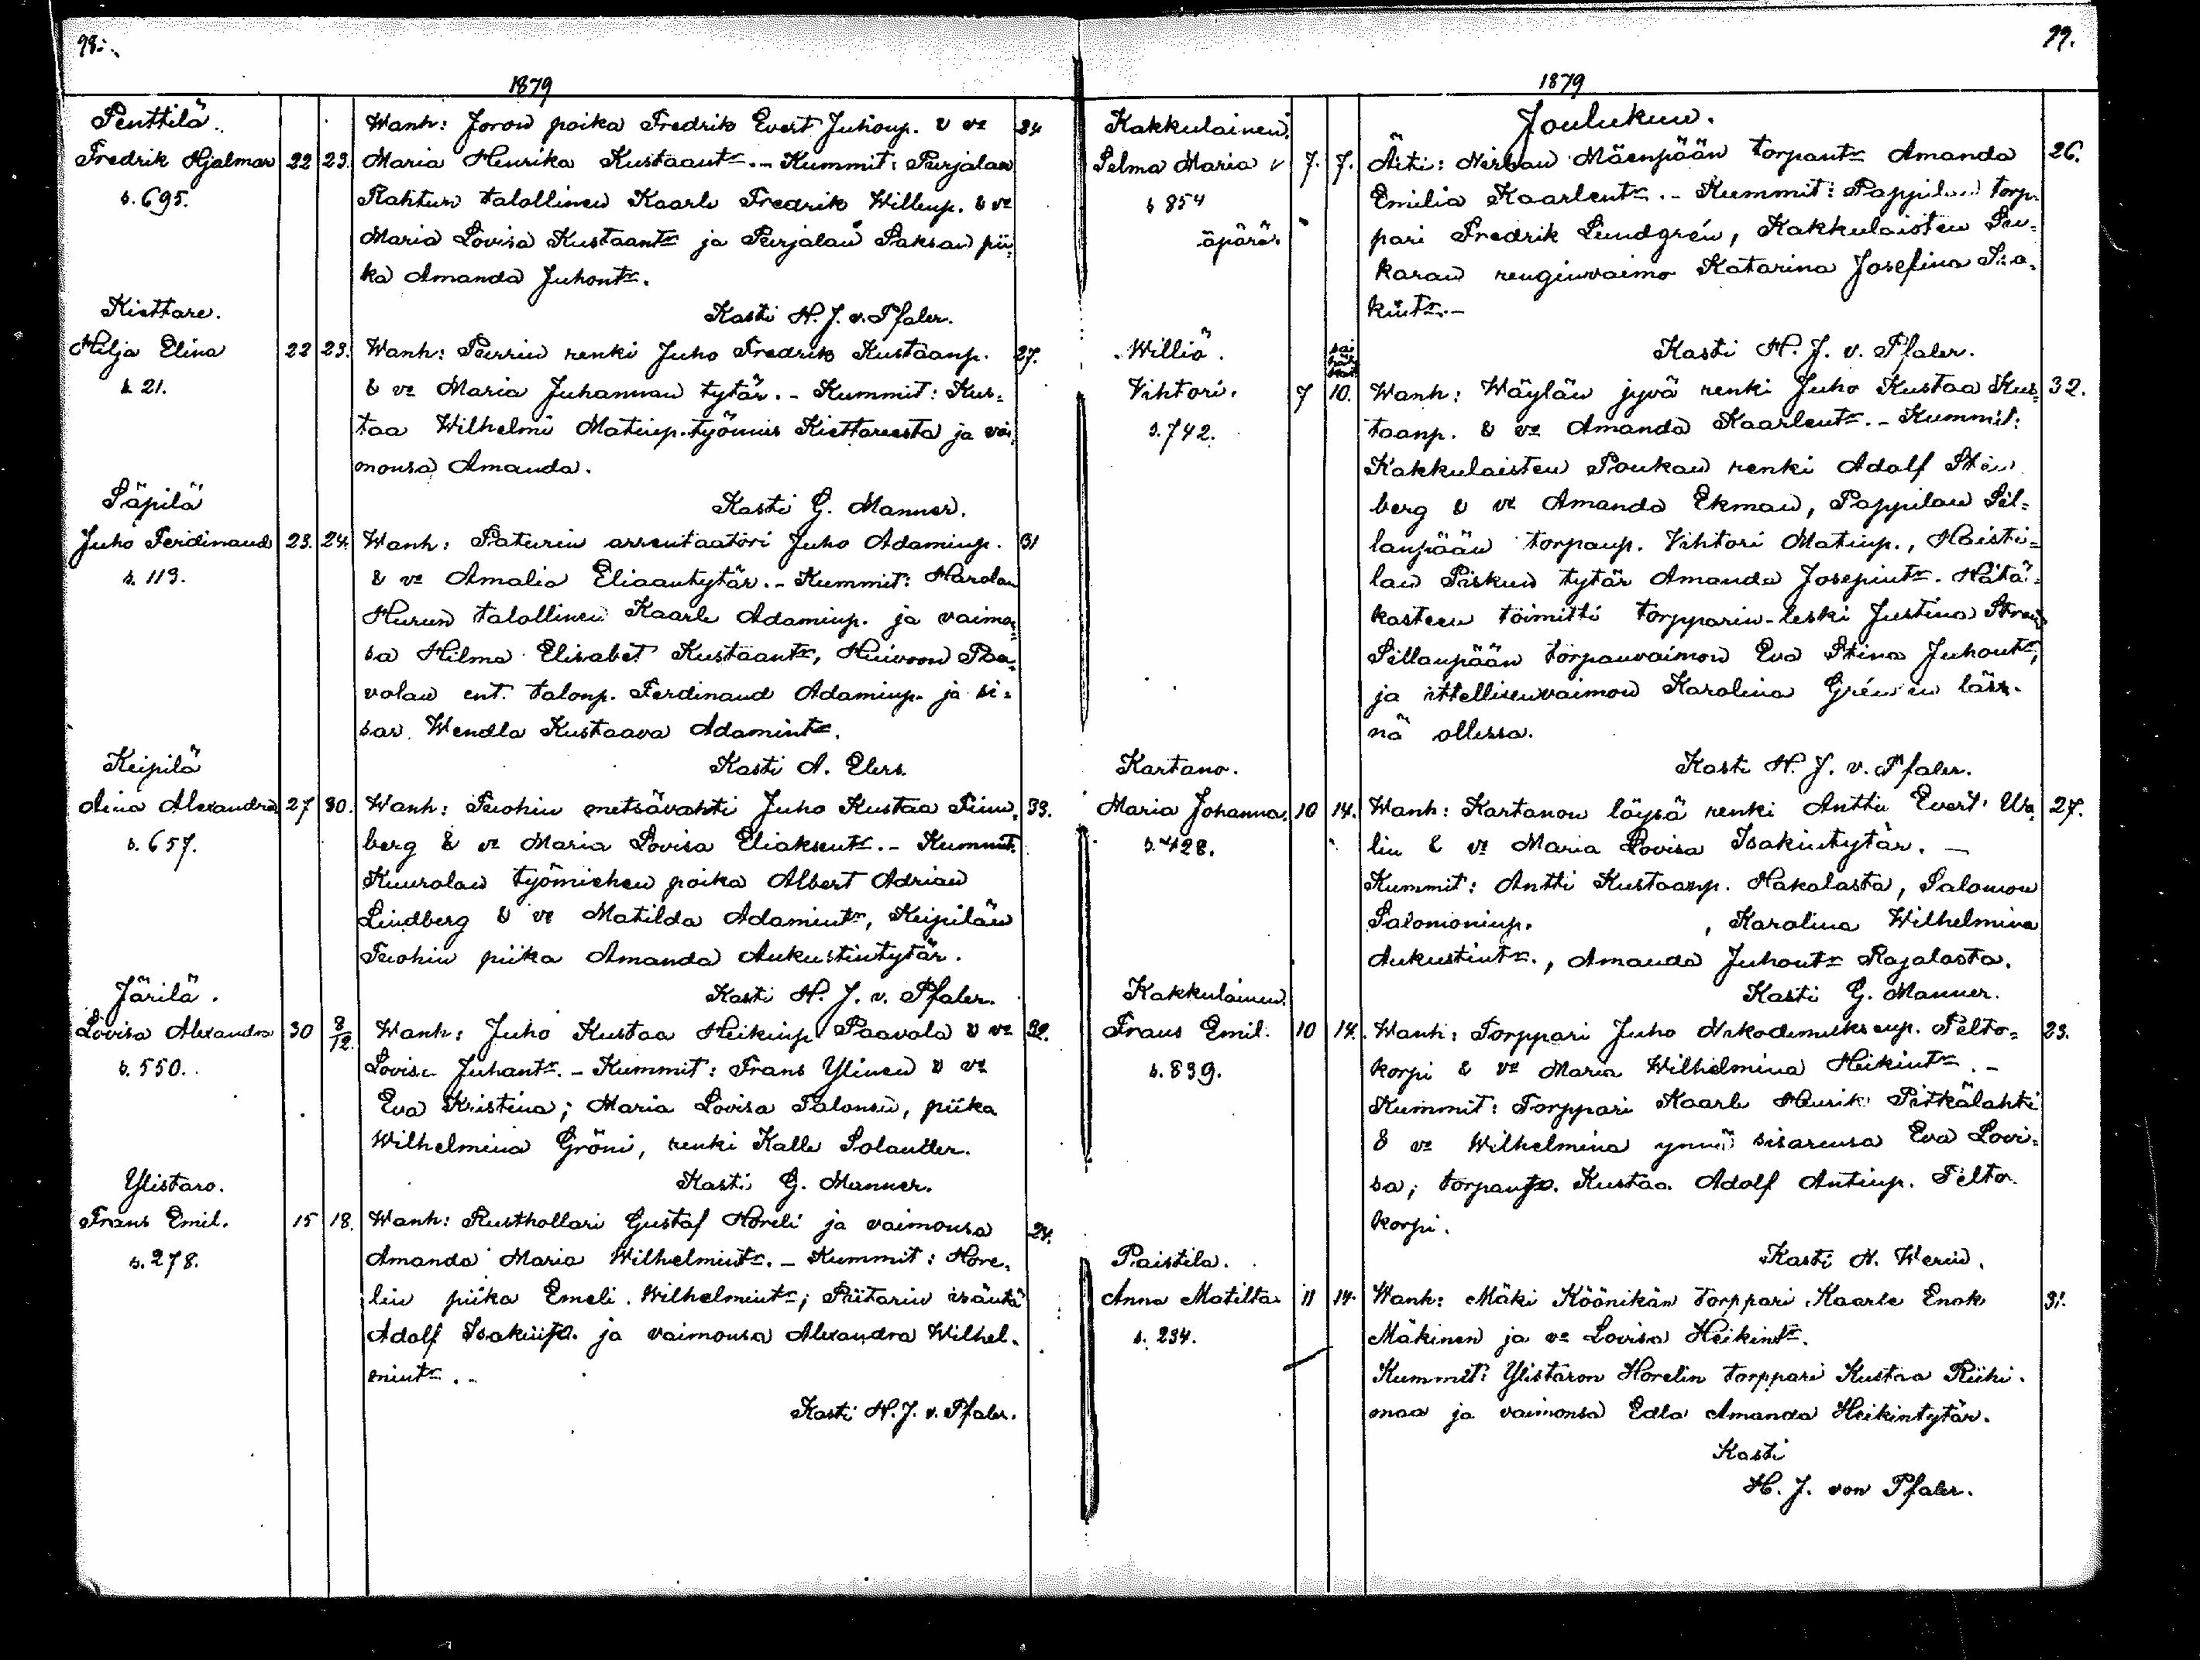 98.
1879
Penttilä.
Wanh: Joron poika Fredrik Evert Juhonp. & vo 34
Fredrik Hjalmar 22 23. Maria Henrika Kustaantr. - Kummit: Purjalan
s. 695. Rahtun talollinen Kaarlo Fredrik Willenp. & vo
Maria Lovisa Kustaantr ja Purjalan Saksan pii-
ka Amanda Juhontr.
Kiettare. Kasti H. J. v. Pfaler.
Hilja Elina 22 23. Wanh: Perrin renki Juho Fredrik Kustaanp. 27.
s. 21. & vo Maria Juhannan tytär. - Kummit: Kus-
taa Wilhelmi Matinp. työmies Kiettareesta ja vai-
monsa Amanda.
Säpilä Kasti G. Manner.
Juho Ferdinand 23. 24. Wanh: Paturin arrentaatori Juho Adaminp. 31
s. 113. & vo Amalia Eliaantytär. - Kummit: Harolan
Hurun talollinen Kaarlo Adaminp. ja vaimon-
sa Hilma Elisabet Kustaantr, Huivoon Paa-
volan ent. talonp. Ferdinand Adaminp. ja si-
sar Wendla Kustaava Adamintr.
Keipilä Kasti A. Elers.
Aina Alexandra 27 30. Wanh: Tuohin metsävahti Juho Kustaa 33.
s. 657. berg & vo Maria Lovisa Eliaksentr. - Kummit:
Kuurolan työmiehen poika Albert Adrian
Lindberg & vo Matilda Adamintr, Keipilän
Tuohin piika Amanda Aukustintytär.
Järilä. Kasti H. J. v. Pfaler.
Lovisa Alexandra 30 3/12. Wanh: Juho Kustaa Heikinp. Paavola & vo 32.
s. 550. Lovisa Juhantr. - Kummit: Frans Ylinen & vo
Eva Kristina; Maria Lovisa Salonen, piika
Wilhelmina Gröni, renki Kalle Solander.
Ylistaro. Kasti G. Manner.
Frans Emil. 15 18. Wanh: Rusthollari Gustaf Horeli ja vaimonsa 24.
s. 278. Amanda Maria Wilhelmintr. - Kummit: Hore-
lin piika Emeli Wilhelmintr; Piitarin isäntä
Adolf Isakinp. ja vaimonsa Alexandra Wilhel-
mintr. -
Kasti H. J. v. Pfaler.
99.
1879
Kakkulainen. Joulukuu.
Selma Maria v 7. 7. Äiti: Mäenpään torpantr Amanda 26.
s 854 Emilia Kaarlentr. - Kummit: Pappilan torp-
äpärä. pari Fredrik Lundgrén, Kakkulaisten Su-
karan renginvaimo Katarina Josefina Isa-
kintr. -
Williö. Kasti H. J. v. Pfaler.
sai
hätä
kast.
Vihtori. 7 10. Wanh: Wäylän jyvä renki Juho Kustaa Kus- 32.
s. 742. taanp. & vo Amanda Kaarlentr. - Kummit:
Kakkulaisten Poukan renki Adolf Sten
berg & vo Amanda Ekman, Pappilan Sil-
lanpään torpanp. Vihtori Matinp., Haisti-
lan Piskun tytär Amanda Josepintr. Hätä-
kasteen toimitti torpparin-leski Justina
Sillanpään torpanvaimon Eva Stina Juhontr,
ja ittellisenvaimon Karolina Grénin läs-
nä ollessa.
Kartano. Kasti H. J. v. Pfaler.
Maria Johanna. 10 14. Wanh: Kartanon löysä renki Anttu Evert Wa- 27.
s. 428. lin & vo Maria Lovisa Isakintytär. -
Kummit: Antti Kustaanp. Hakalasta, Salomon
Salomoninp. , Karolina Wilhelmina
Aukustintr., Amanda Juhontr Rajalasta.
Kakkulainen. Kasti G. Manner.
Frans Emil. 10 14. Wanh: Torppari Juho Nikodemuksenp. Pelto- 23.
s. 839. korpi & vo Maria Wilhelmina Heikintr. -
Kummit: Torppari Kaarlo Henrik Pitkälahti
& vo Wilhelmina ynnä sisarensa Eva Lovi-
sa; torpanp. Kustaa Adolf Antinp. Pelto-
korpi.
Paistila. Kasti N. Werin.
Anna Matilta 11 14. Wanh: Mäki Köönikän torppari Kaarle Enok 31.
s. 234. Mäkinen ja vo Lovisa Heikintr.
Kummit: Ylistaron Horelin torppari Kustaa Riihi-
maa ja vaimonsa Edla Amanda Heikintytär.
Kasti
H. J. von Pfaler.